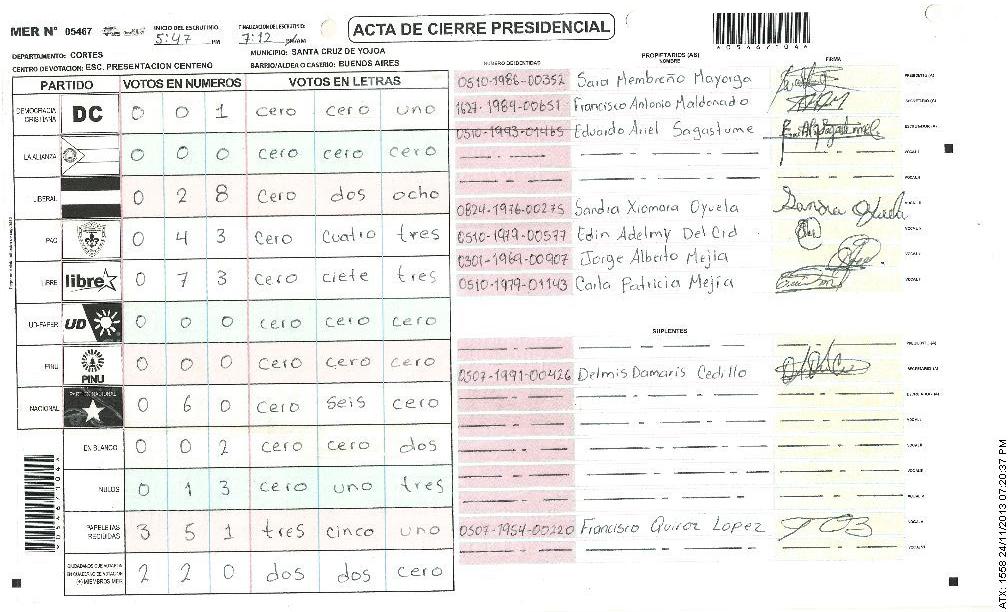 MER N° 05467
INICIO DEL ESCRUTINIO: 5:47 PM
FINALIZACION DEL ESCRUTINIO: 7:12 PM/AM
ACTA DE CIERRE PRESIDENCIAL
DEPARTAMENTO: CORTES
MUNICIPIO: SANTA CRUZ DE YOJOA
CENTRO DE VOTACION: ESC. PRESENTACION CENTENO
BARRIO/ALDEA O CASERIO: BUENOS AIRES
PARTIDO VOTOS EN NUMEROS VOTOS EN LETRAS
DEMOCRACIA CRISTIANA DC 0 0 1 cero cero uno
LA ALIANZA 0 0 0 cero cero cero
LIBERAL 0 2 8 cero dos ocho
PAC 0 4 3 cero cuatro tres
LIBRE libre 0 7 3 cero ciete tres
UD-FAPER UD 0 0 0 cero cero cero
PINU PINU 0 0 0 cero cero cero
NACIONAL PARTIDO NACIONAL 0 6 0 cero seis cero
EN BLANCO 0 0 2 cero cero dos
NULOS 0 1 3 cero uno tres
PAPELETAS RECIBIDAS 3 5 1 tres cinco uno
CIUDADANOS QUE VOTARON EN CUADERNO DE VOTACION (+) MIEMBROS MER 2 2 0 dos dos cero
PROPIETARIOS (AS)
NUMERO DE IDENTIDAD NOMBRE FIRMA
0510-1986-00352 Sara Membreño Mayorga PRESIDENTE (A)
1627-1989-00651 Francisco Antonio Maldonado SECRETARIO (A)
0510-1993-01465 Eduardo Ariel Sagastume ESCRUTADOR (A)
VOCAL I
VOCAL II
0824-1976-00275 Sandra Xiomara Oyuela
0510-1979-00577 Edin Adelmy Del Cid
0301-1969-00907 Jorge Alberto Mejia
0510-1979-01143 Carla Patricia Mejía
SUPLENTES
PRESIDENTE (A)
0507-1991-00426 Delmis Damaris Cedillo SECRETARIO (A)
ESCRUTADOR (A)
0507-1954-00220 Francisco Quiroz Lopez
ATX: 1558 24/11/2013 07:20:37 PM